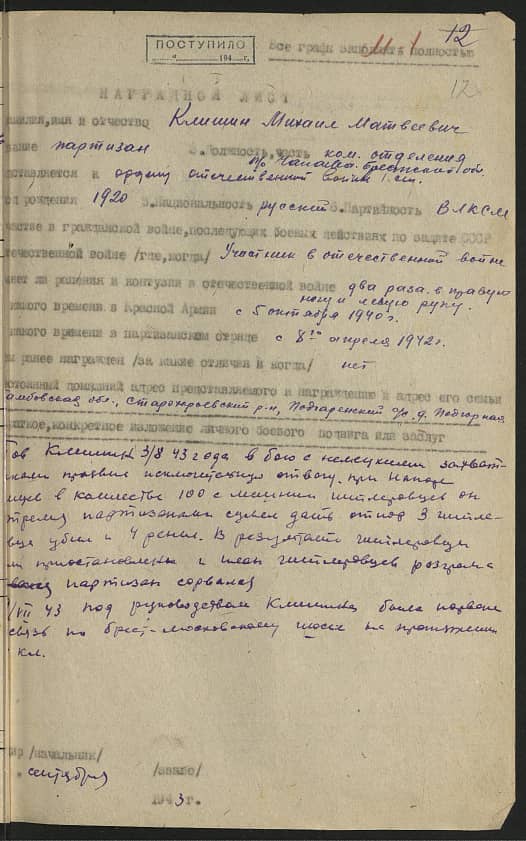 12
ПОСТУПИЛО
194 г.
Все графы заполнять полностью
12
НАГРАДНОЙ ЛИСТ
амилия, имя и отчество Клишин Михаил Матвеевич
вание партизан 3. Должность, часть ком. отделения
п/о Чапаева Брестской об.
дставляется к ордену отечественной войны I ст.
од рождения 1920 5. Национальность русский 6. Партийность ВЛКСМ
частие в гражданской войне, последующих боевых действиях по защите СССР
течественной войне /где, когда/ Участник в отечественной войне
меет ли ранения и контузии в отечественной войне два раза в правую
ногу и левую руку.
какого времени в Красной Армии с 5 октября 1940 г.
какого времени в партизанском отряде с 8го апреля 1942 г.
м ранее награжден /за какие отличия и когда/ нет
остоянный домашний адрес представляемого к награждению и адрес его семьи
амбовская обл., Староюрьевский р-н, Подгаренский с/с д. Подгорная
раткое, конкретное изложение личного боевого подвига или заслуг
Тов Клишин 3/8 43 года в бою с немецкими захват-
чиками проявил исключительную отвагу. при нападе
в количестве 100 с лишним гитлеровцев он
тремя партизанами сумел дать отпор 3 гитле-
вца убил и 4 ранил. В результате гитлеровцы
ли приостановлены и план гитлеровцев разгрома
партизан сорвался
43 под руководством Клишина была порвана
связь по брест-московскому шоссе на протяжении
км.
ир /начальник/
сентября /звание/
1943 г.